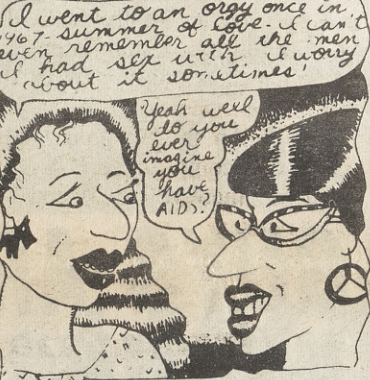 I went to an orgy once in
1967 - summer of love - I can't
even remember all the men
I had sex with. I worry
about it sometimes!
Yeah well
do you
ever
imagine
you
have
AIDS?